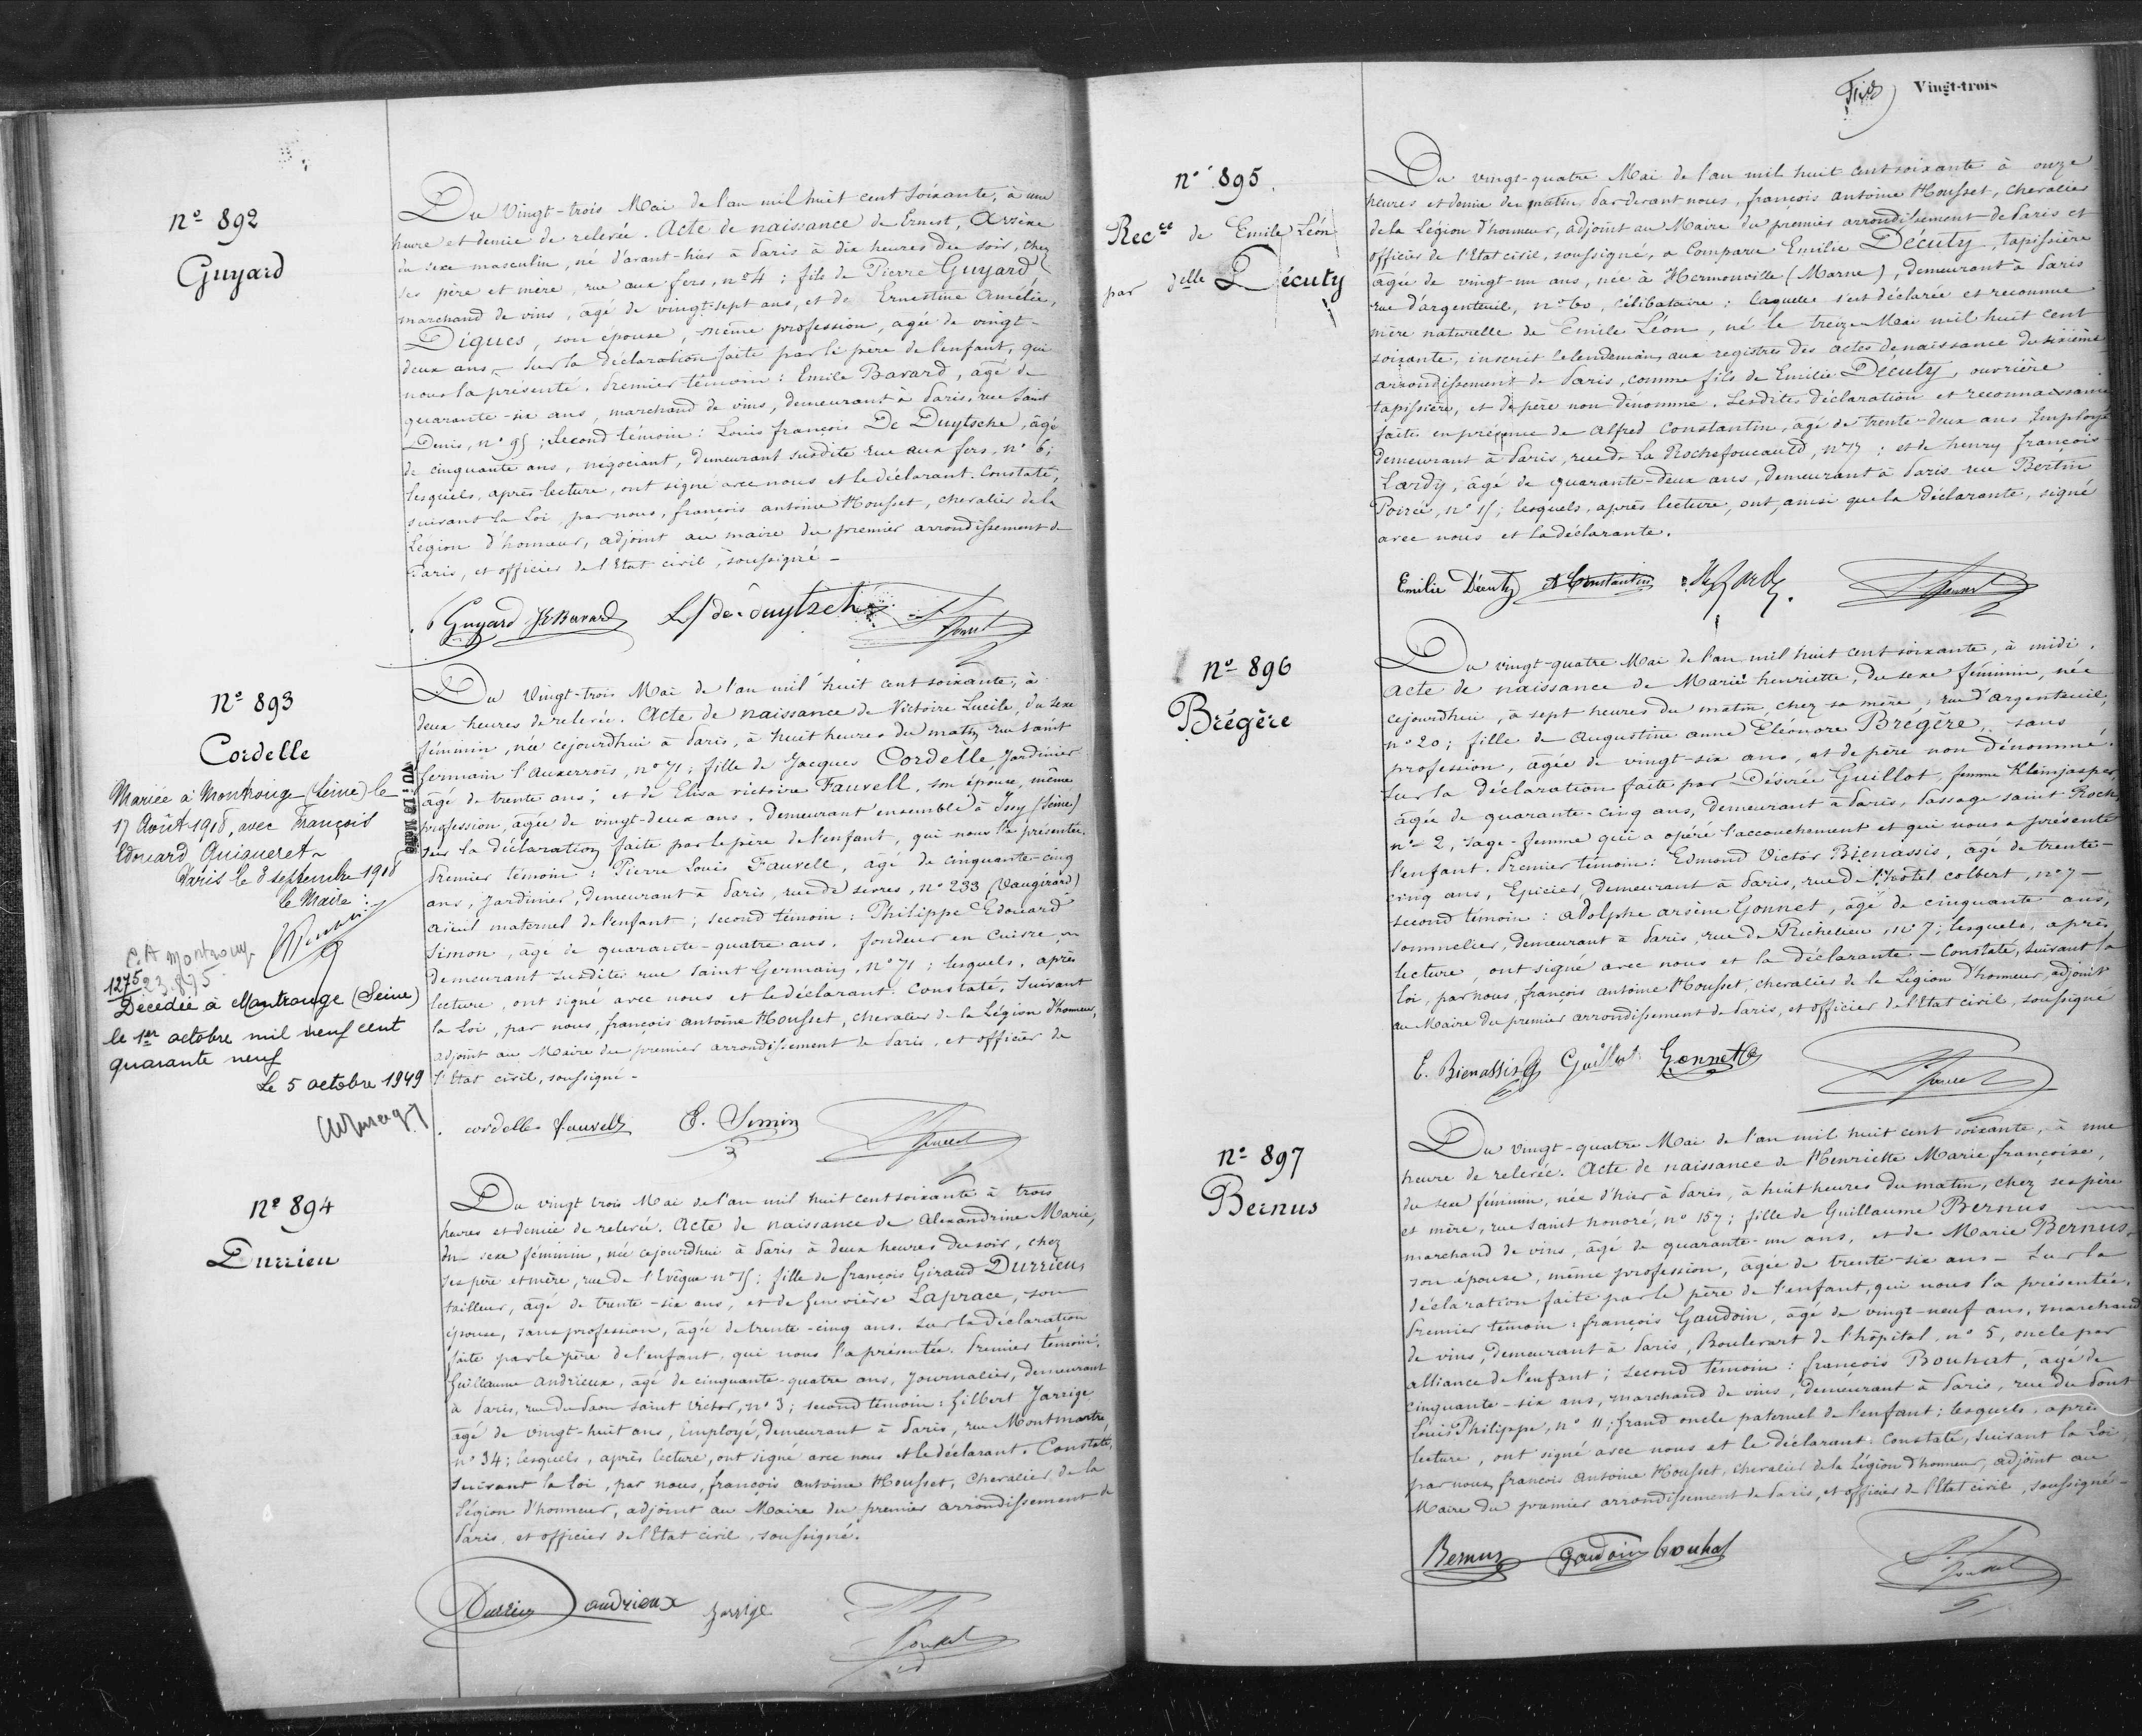 nº 892
Guyard
Du Vingt-trois Mai de l'an mil huit cent soixante, à une
heure et demie de relevée. Acte de naissance de Ernest, Arsène
du sexe masculin, né d'avant-hier à Paris à dix heures du soir, chez
ses père et mère, rue aux fers, nº 4 ; fils de Pierre Guyard
marchand de vins, agé de vingt-sept ans, et de Ernestine Amélie,
Digues, son épouse, même profession, agée de vingt-
deux ans - sur la déclaration faite par le père de l'enfant, qui
nous l'a présenté. Premier témoin : Emile Bavard, agé de
quarante-six ans, marchand de vins, demeurant à Paris, rue Saint
Denis, nº 95 ; Second témoin : Louis françois De Duytsche, âgé
de cinquante ans, négociant, demeurant susdite rue aux fers, nº 6 ;
lesquels, après lecture, ont signé avec nous et le déclarant. Constaté,
suivant la Loi, par nous, françois antoine Housset, chevalier de la
Légion d'honneur, adjoint au maire du premier arrondissement de
Paris, et officier de l'Etat civil, soussigné -
Guyard Bavard L f de duytsche
nº 893
Cordelle
Mariée à Montrouge (Seine) le
17 Août 1918, avec François
Edouard Quiqueret -
Paris le 8 septembre 1918
le Maire :
1275
Décédée à Montrouge (Seine)
le 1er octobre mil neuf cent
quarante neuf
Le 5 octobre 1949
Du Vingt-trois Mai de l'an mil huit cent soixante, à
deux heures de relevée. Acte de naissance de Victoire Lucile, du sexe
féminin, née cejourdhui à Paris, à huit heures du matin rue saint
Germain l'Auxerrois, nº 71 ; fille de Jacques Cordelle, Jardinier
âgé de trente ans ; et de Elisa victoire Fauvell, son épouse, même
profession, âgée de vingt-deux ans. demeurant ensemble à Issy (Seine)
sur la déclaration faite par le père de l'enfant, qui nous l'a présentée.
Premier témoin : Pierre Louis Fauvell, âgé de cinquante-cinq
ans, Jardinier, demeurant à Paris, rue de sèvres, nº 233 (Vaugirard)
aïeul maternel de l'enfant ; second témoin : Philippe Edouard
Simon, âgé de quarante-quatre ans. fondeur en Cuivre
demeurant susdite rue Saint Germain, nº 71 ; lesquels, après
lecture, ont signé avec nous et le déclarant. Constaté, Suivant
la Loi, par nous, françois antoine Housset, chevalier de la Légion d'honneur,
adjoint au Maire du premier arrondissement de Paris, et officier de
l'Etat civil, soussigné -
cordelle fauvell E. Simon
nº 894
Durrieu
Du vingt trois Mai de l'an mil huit cent soixante à trois
heures et demie de relevée. Acte de naissance de Alexandrine Marie,
du sexe féminin, née cejourdhui à Paris à deux heures du soir, chez
ses père et mère, rue de l'Evêque nº 15 ; fille de françois Giraud Durrieu,
tailleur, agé de trente-six ans, et de Geneviève Laprace, son
épouse, sans profession, âgée de trente-cinq ans. sur la déclaration
faite par le père de l'enfant, qui nous l'a présentée. Premier témoin :
Guillaume Andrieux, âgé de cinquante-quatre ans, Journalier, demeurant
à Paris, rue du Paon Saint Victor, nº 3 ; second témoin : Gilbert Jarrige
âgé de vingt-huit ans, Employé, demeurant à Paris, rue Montmartre,
nº 34 ; lesquels, après lecture, ont signé avec nous et le déclarant. Constaté,
suivant la loi, par nous, françois antoine Housset, Chevalier de la
Légion d'honneur, adjoint au Maire du premier arrondissement de
Paris, et officier de l'Etat civil, soussigné.
Durrieu andrieux Jarrige
Vingt-trois
nº 895
Recce de Emile Léon
par delle Décuty
Du vingt-quatre Mai de l'an mil huit cent soixante à onze
heures et demie du matin, Par devant nous, françois antoine Housset, chevalier
de la Légion d'honneur, adjoint au Maire du premier arrondissement de Paris et
officier de l'Etat civil, soussigné, a Comparu Emilie Décuty, tapissière
âgée de vingt-un ans, née à Hermonville (Marne), demeurant à Paris
rue d'argenteuil, nº 60, célibataire ; laquelle s'est déclarée et reconnue
mère naturelle de Emile Léon, né le treize Mai mil huit cent
soixante, inscrit le lendemain, aux registres des actes de naissance du sixième
arrondissement de Paris, comme fils de Emilie Décuty, ouvrière
tapissière, et de père non dénommé. Lesdites déclaration et reconnaissance
faites en présence de Alfred Constantin, agé de trente-deux ans, Employé
demeurant à Paris, rue de La Rochefoucauld, nº 17 ; et de henry françois
Lardy, âgé de quarante-deux ans, demeurant à Paris rue Bertin
Poirée, nº 15 ; lesquels, après lecture, ont, ainsi que la déclarante, signé
avec nous et la déclarante.
Emilie Décuty A Constantin
nº 896
Brégère
Du vingt-quatre Mai de l'an mil huit cent soixante, à midi.
Acte de naissance de Marie henriette, du sexe féminin, née
cejourdhui, à sept heures du matin, chez sa mère, rue d'argenteuil,
nº 20 ; fille de Augustine anne Eléonore Brégère, sans
profession, âgée de vingt-six ans, et de père non dénommé.
Sur la déclaration faite par Désirée Guillot, femme Kleinjasper,
âgée de quarante-cinq ans, demeurant à Paris, Passage saint Roch,
nº 2, sage-femme qui a opéré l'accouchement et qui nous a présenté
l'enfant. Premier témoin : Edmond Victor Bienassis, âgé de trente-
cinq ans, Epicier, demeurant à Paris, rue de l'hôtel colbert, nº 7 -
second témoin : Adolphe arsène Gonnet, âgé de cinquante ans,
sommelier, demeurant à Paris, rue de Richelieu, nº 7 ; lesquels, après
lecture, ont signé avec nous et la déclarante - Constaté, suivant la
loi, par nous, françois antoine Housset, chevalier de la Légion d'honneur, adjoint
au Maire du premier arrondissement de Paris, et officier de l'Etat civil, soussigné
E. Bienassis Guillot Gonnet
nº 897
Bernus
Du vingt-quatre Mai de l'an mil huit cent soixante, à une
heure de relevée. Acte de naissance de Henriette Marie françoise,
du sexe féminin, née d'hier à Paris, à huit heures du matin, chez ses père
et mère, rue saint honoré, nº 157 ; fille de Guillaume Bernus
marchand de vins, âgé de quarante-un ans, et de Marie Bernus,
son épouse, même profession, âgée de trente-six ans - Sur la
déclaration faite par le père de l'enfant, qui nous l'a présentée.
Premier témoin : françois Gaudoin, âgé de vingt-neuf ans, marchand
de vins, demeurant à Paris, Boulevart de l'hôpital, nº 5, oncle par
alliance de l'enfant ; second témoin : françois Bouhat, âgé de
cinquante-six ans, marchand de vins, demeurant à Paris, rue du Pont
Louis Philippe, nº 11 ; grand oncle paternel de l'enfant ; lesquels, après
lecture, ont signé avec nous et le déclarant. Constaté, suivant la Loi,
par nous, françois antoine Housset, chevalier de la Légion d'honneur, adjoint au
Maire du premier arrondissement de Paris, et officier de l'Etat civil, soussigné -
Bernus Gaudoin Bouhat